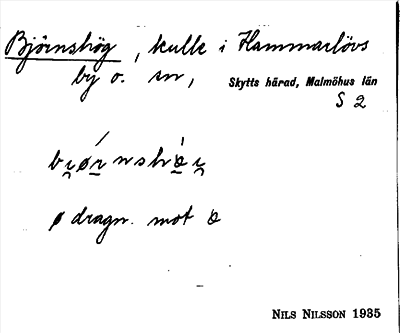 Björnshög, kulle i Hammarlövs
by o. sn,
Skytts härad, Malmöhus län
S 2
ø dragn. mot
NILS NILSSON 1935